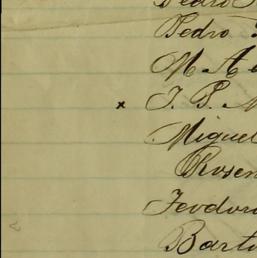 Pedro
Pedro
M. A
x J. P. M
Miguel
Rosen
Teodor
Barto